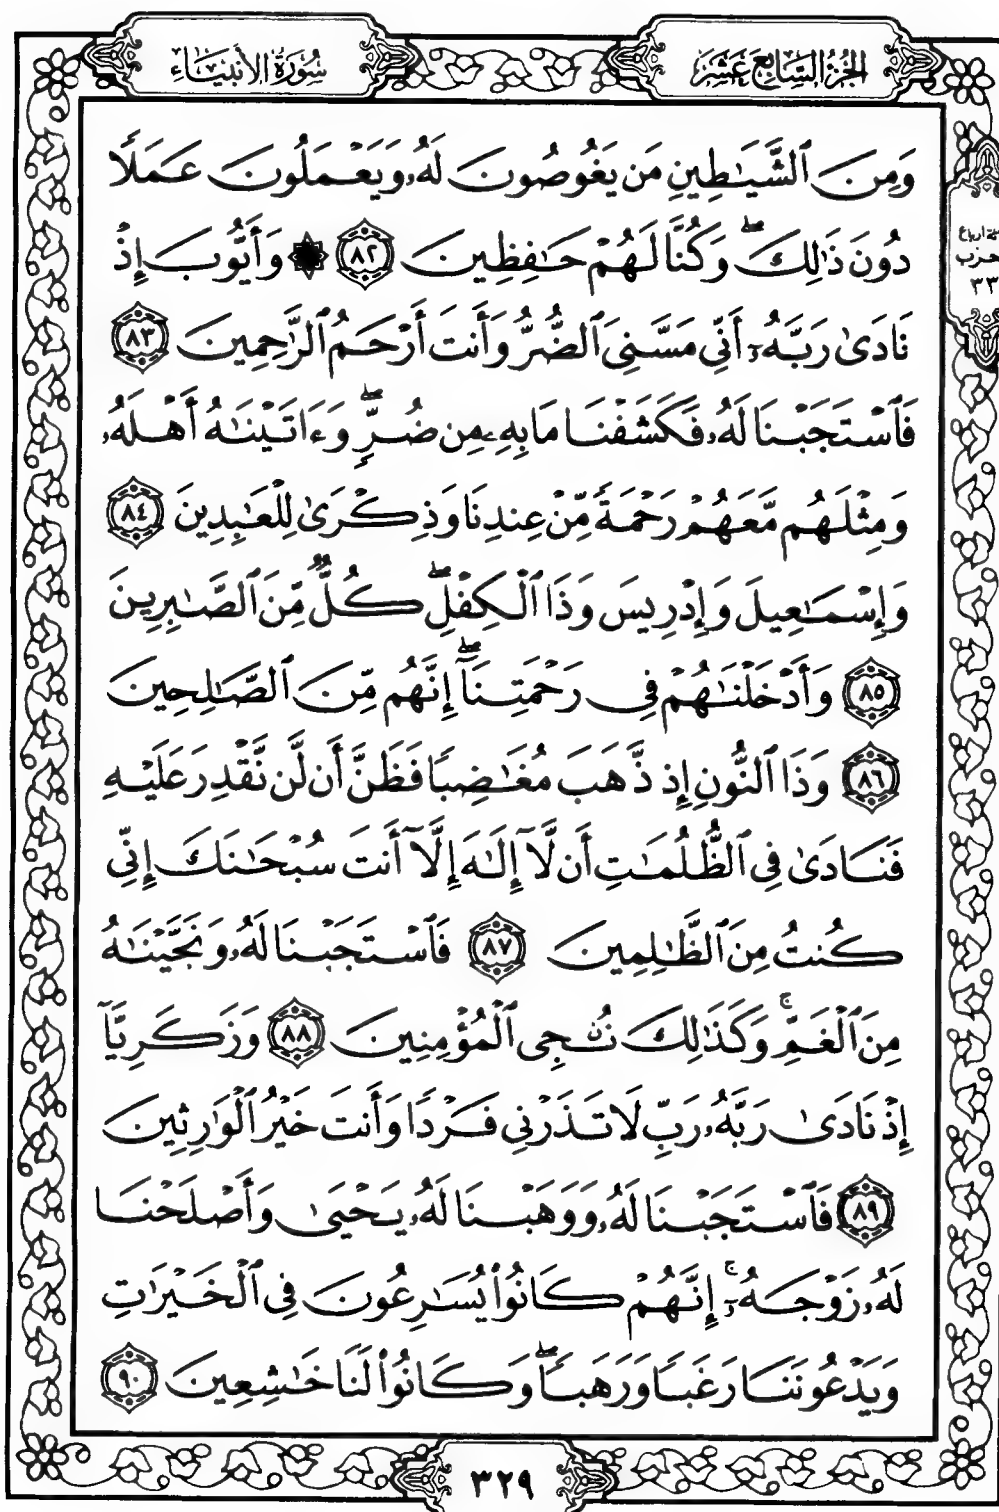 الجزء السابع عشر
سُورَةُ الأَنبِيَاءِ
وَمِنَ ٱلشَّيَٰطِينِ مَن يَغُوصُونَ لَهُۥ وَيَعْمَلُونَ عَمَلًا
دُونَ ذَٰلِكَۖ وَكُنَّا لَهُمْ حَٰفِظِينَ ٨٢ ۞ وَأَيُّوبَ إِذْ
نَادَىٰ رَبَّهُۥٓ أَنِّي مَسَّنِيَ ٱلضُّرُّ وَأَنتَ أَرْحَمُ ٱلرَّٰحِمِينَ ٨٣
فَٱسْتَجَبْنَا لَهُۥ فَكَشَفْنَا مَا بِهِۦ مِن ضُرٍّۖ وَءَاتَيْنَٰهُ أَهْلَهُۥ
وَمِثْلَهُم مَّعَهُمْ رَحْمَةً مِّنْ عِندِنَا وَذِكْرَىٰ لِلْعَٰبِدِينَ ٨٤
وَإِسْمَٰعِيلَ وَإِدْرِيسَ وَذَا ٱلْكِفْلِۖ كُلٌّ مِّنَ ٱلصَّٰبِرِينَ
٨٥ وَأَدْخَلْنَٰهُمْ فِي رَحْمَتِنَآۖ إِنَّهُم مِّنَ ٱلصَّٰلِحِينَ
٨٦ وَذَا ٱلنُّونِ إِذ ذَّهَبَ مُغَٰضِبًا فَظَنَّ أَن لَّن نَّقْدِرَ عَلَيْهِ
فَنَادَىٰ فِي ٱلظُّلُمَٰتِ أَن لَّآ إِلَٰهَ إِلَّآ أَنتَ سُبْحَٰنَكَ إِنِّي
كُنتُ مِنَ ٱلظَّٰلِمِينَ ٨٧ فَٱسْتَجَبْنَا لَهُۥ وَنَجَّيْنَٰهُ
مِنَ ٱلْغَمِّۚ وَكَذَٰلِكَ نُۨجِي ٱلْمُؤْمِنِينَ ٨٨ وَزَكَرِيَّآ
إِذْ نَادَىٰ رَبَّهُۥ رَبِّ لَا تَذَرْنِي فَرْدًا وَأَنتَ خَيْرُ ٱلْوَٰرِثِينَ
٨٩ فَٱسْتَجَبْنَا لَهُۥ وَوَهَبْنَا لَهُۥ يَحْيَىٰ وَأَصْلَحْنَا
لَهُۥ زَوْجَهُۥٓۚ إِنَّهُمْ كَانُوا۟ يُسَٰرِعُونَ فِي ٱلْخَيْرَٰتِ
وَيَدْعُونَنَا رَغَبًا وَرَهَبًاۖ وَكَانُوا۟ لَنَا خَٰشِعِينَ ٩٠
أرباع
حزب
٣٣
٣٢٩